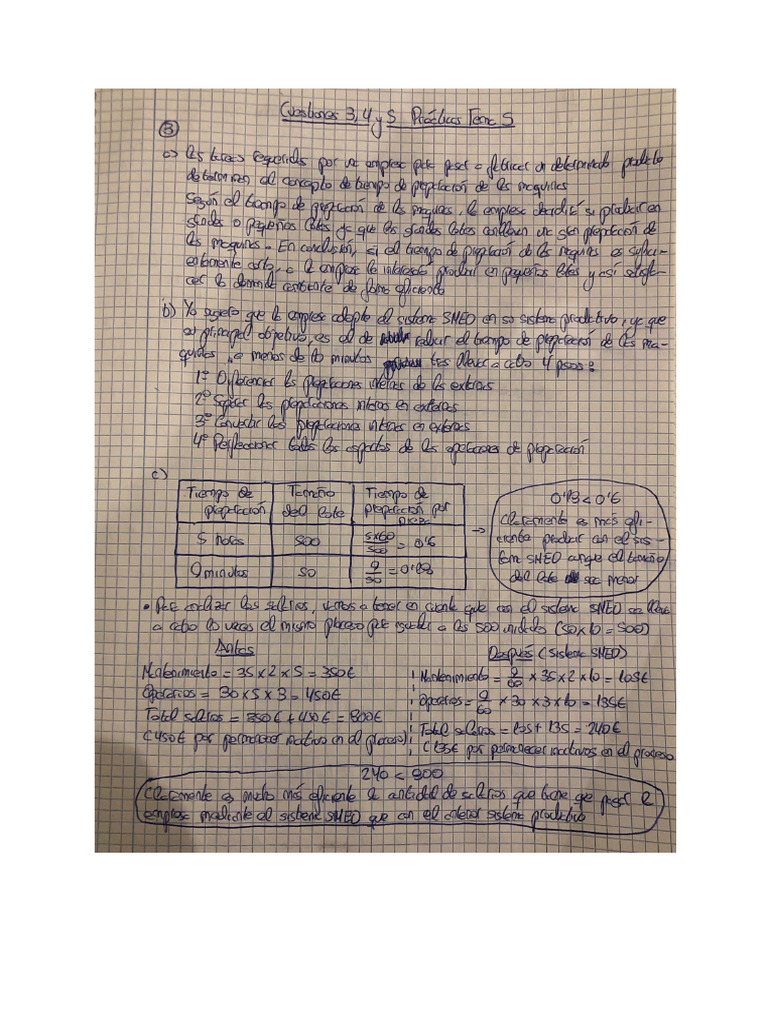 Cuestiones 3, 4 y 5 Prácticas Tema 5
③
a) Las tareas requeridas por una empresa para pasar a fabricar un determinado producto
determinan el concepto de tiempo de preparación de las maquinas
Según el tiempo de preparación de las maquinas, la empresa decidirá si producir en
grandes o pequeños lotes, ya que los grandes lotes conllevan una gran preparación de
las maquinas. En conclusión, si el tiempo de preparación de las maquinas es sufici-
entemente corto, a la empresa le interesará producir en pequeños lotes y así satisfa-
cer la demanda cambiante de forma eficiente
b) Yo sugiero que la empresa adopte el sistema SMED en su sistema productivo, ya que
su principal objetivo, es el de reducir el tiempo de preparación de las ma-
quinas, a menos de 10 minutos tras llevar a cabo 4 pasos:
1º Diferenciar las preparaciones internas de las externas
2º Separar las preparaciones internas en externas
3º Convertir las preparaciones internas en externas
4º Perfeccionar todos los aspectos de las operaciones de preparación
c)
Tiempo de preparación | Tamaño del lote | Tiempo de preparación por pieza
5 horas | 500 | 5x60/500 = 0'6
9 minutos | 50 | 9/50 = 0'18
→ 0'18 < 0'6
Claramente es más efi-
ciente producir con el sis-
tema SMED aunque el tamaño
del lote sea menor
• Para analizar los salarios, vamos a tener en cuenta que con el sistema SMED se lleva
a cabo 10 veces el mismo proceso para igualar a las 500 unidades (50x10=500)
Antes
Mantenimiento = 35 x 2 x 5 = 350€
Operarios = 30 x 5 x 3 = 450€
Total salarios = 350€ + 450€ = 800€
(450€ por permanecer inactivo en el proceso)
Después (Sistema SMED)
Mantenimiento = 9/60 x 35 x 2 x 10 = 105€
Operarios = 9/60 x 30 x 3 x 10 = 135€
Total salarios = 105 + 135 = 240€
(135€ por permanecer inactivos en el proceso
240 < 800
Claramente es mucho más eficiente la cantidad de salarios que tiene que pagar la
empresa mediante el sistema SMED que con el anterior sistema productivo